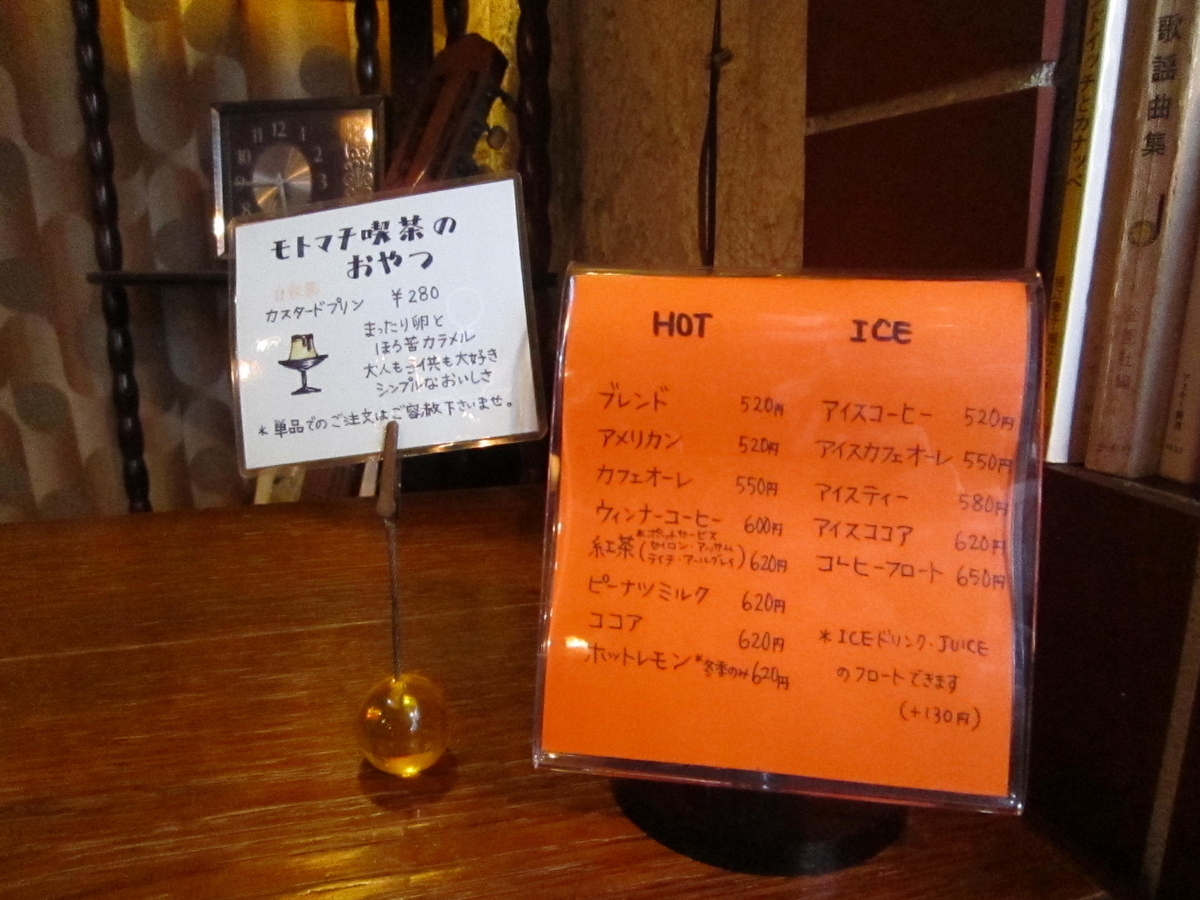 モトマチ喫茶の
おやつ
自家製
カスタードプリン ￥280
まったり卵と
ほろ苦カラメル
大人も子供も大好き
シンプルなおいしさ
*単品でのご注文はご容赦下さいませ。
HOT
ブレンド 520円
アメリカン 520円
カフェオーレ 550円
ウィンナーコーヒー 600円
*ポットサービス
紅茶(セイロン・アッサム
ライチ・アールグレイ) 620円
ピーナツミルク 620円
ココア 620円
ホットレモン*冬季のみ 620円
ICE
アイスコーヒー 520円
アイスカフェオーレ 550円
アイスティー 580円
アイスココア 620円
コーヒーフロート 650円
*ICEドリンク・JUICE
のフロートできます
(+130円)
11 12
10 2
9 3
8
イッチとカナッペ
歌謡曲集